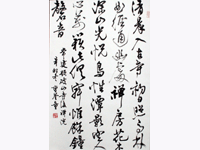 清晨入古寺初日照高林
曲径通幽處禪房花木
深山光悦鳥性潭影空人
心萬籁此俱寂惟餘鐘
磬音
常建題破山寺後禪院